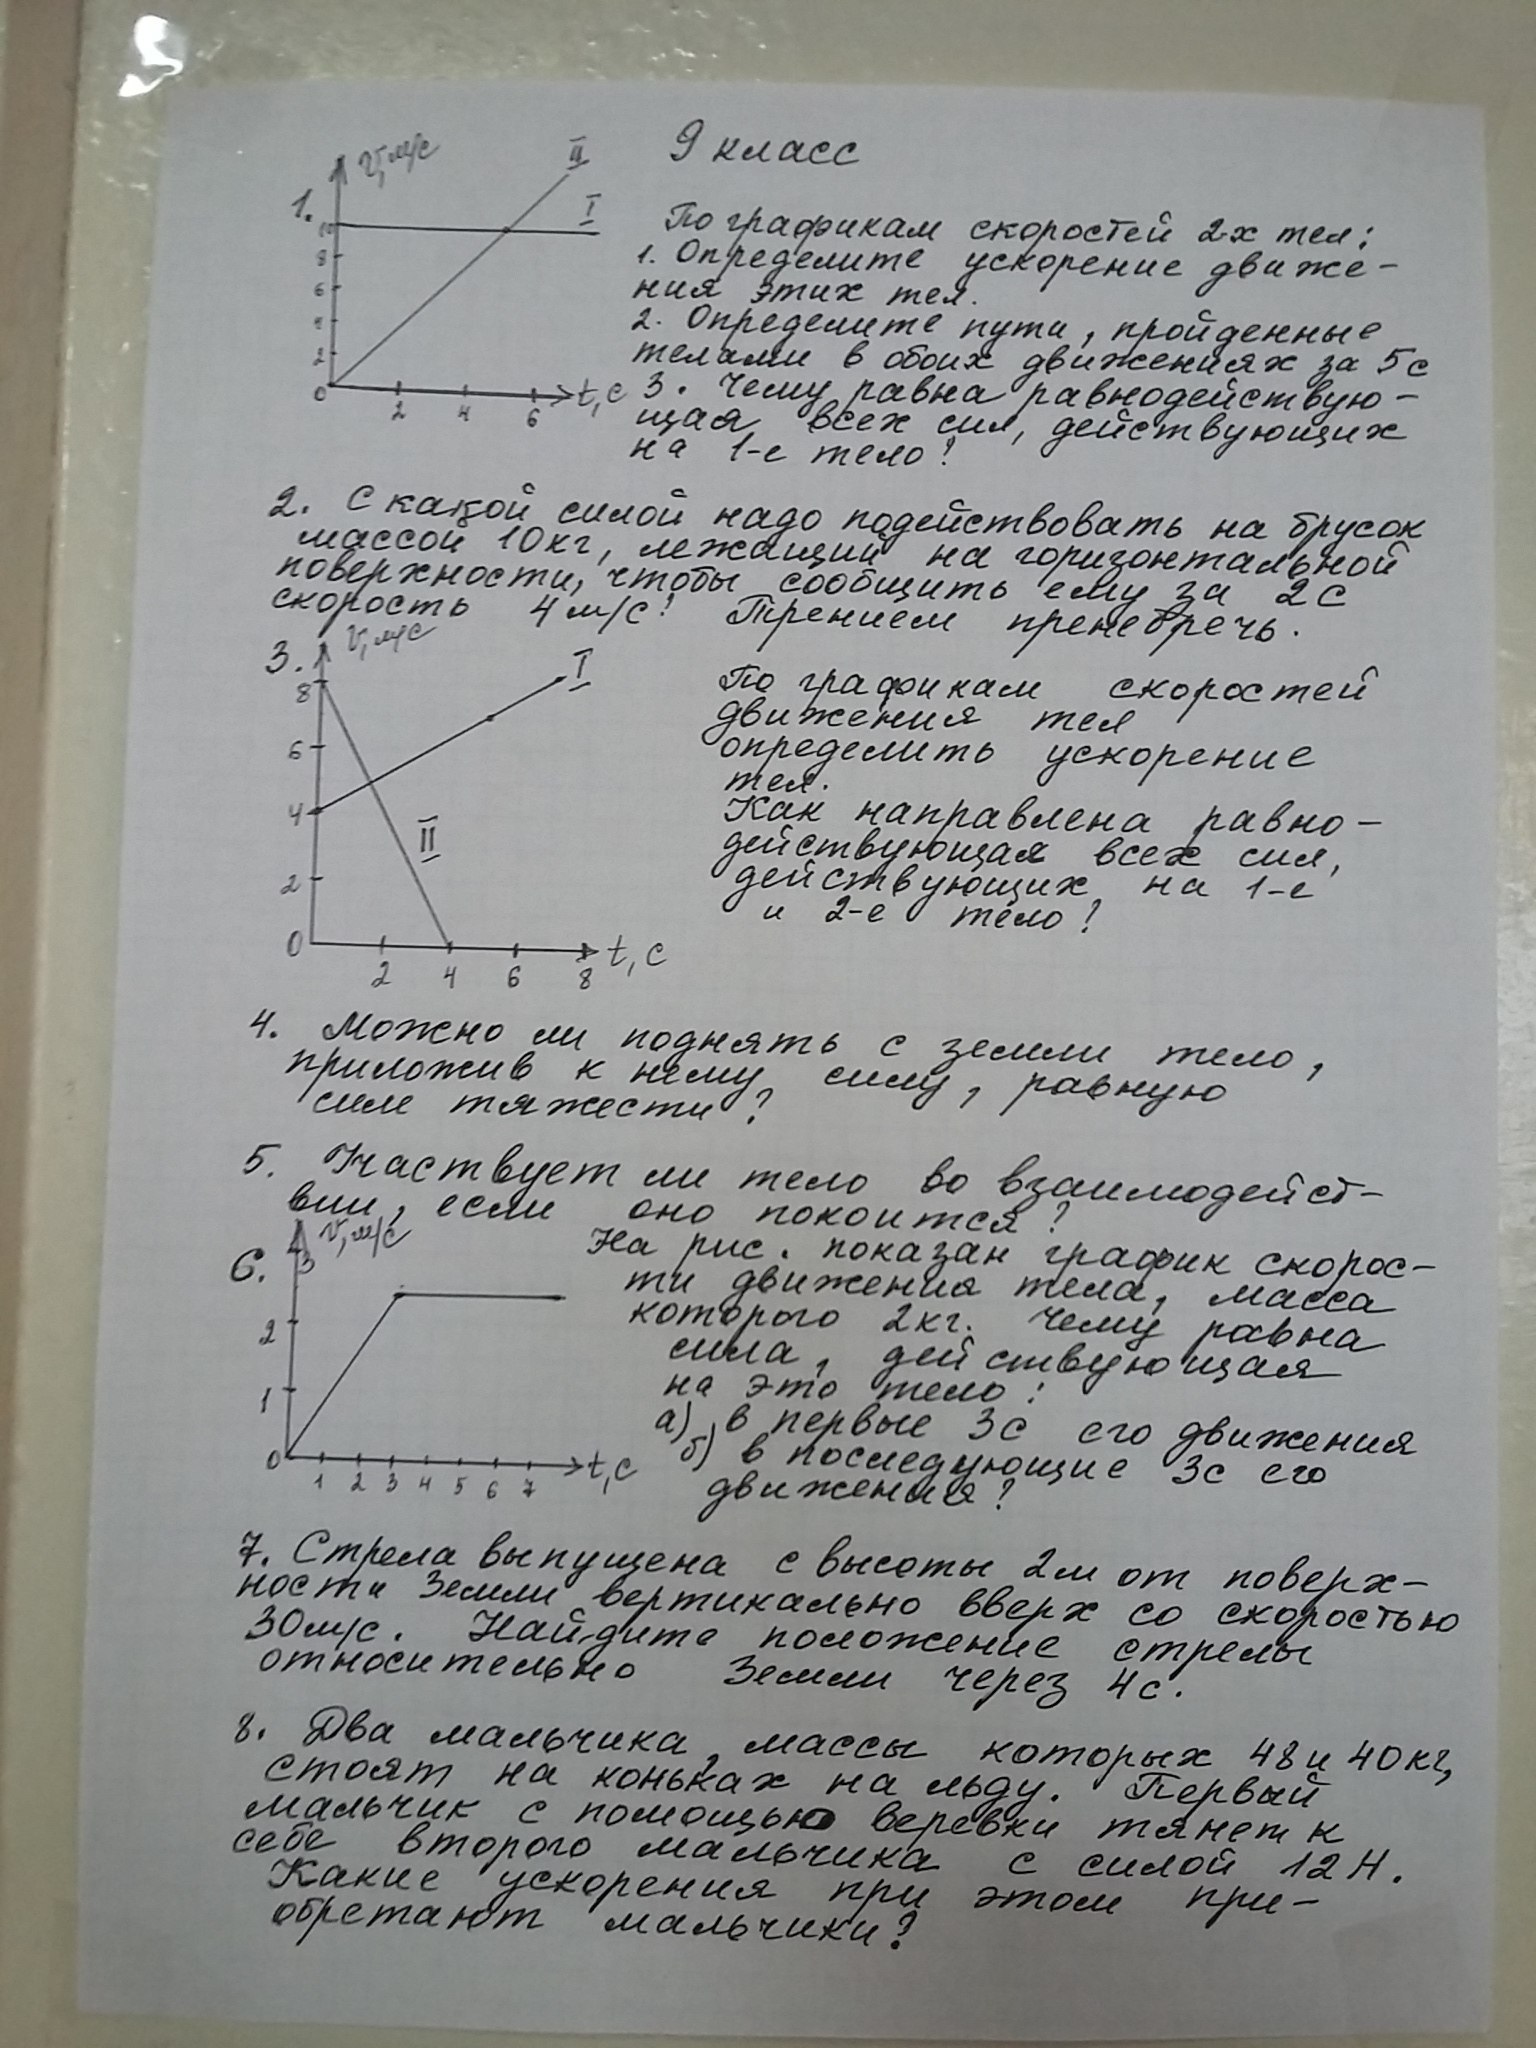 9 класс
1.
V, м/с
II
I
10
8
6
4
2
0
2 4 6 t, с
По графикам скоростей 2-х тел:
1. Определите ускорение движе-
ния этих тел.
2. Определите пути, пройденные
телами в обоих движениях за 5с
3. Чему равна равнодействую-
щая всех сил, действующих
на 1-е тело?
2. С какой силой надо подействовать на брусок
массой 10кг, лежащий на горизонтальной
поверхности, чтобы сообщить ему за 2с
скорость 4м/с? Трением пренебречь.
3.
V, м/с
I
8
6
4
II
2
0
2 4 6 8 t, с
По графикам скоростей
движения тел
определить ускорение
тел.
Как направлена равно-
действующая всех сил,
действующих на 1-е
и 2-е тело?
4. Можно ли поднять с земли тело,
приложив к нему силу, равную
силе тяжести?
5. Участвует ли тело во взаимодейст-
вии, если оно покоится?
6.
V, м/с
3
2
1
0
1 2 3 4 5 6 7 t, с
На рис. показан график скорос-
ти движения тела, масса
которого 2кг. Чему равна
сила, действующая
на это тело:
а) в первые 3с его движения
б) в последующие 3с его
движения?
7. Стрела выпущена с высоты 2м от поверх-
ности Земли вертикально вверх со скоростью
30м/с. Найдите положение стрелы
относительно Земли через 4с.
8. Два мальчика, массы которых 48 и 40кг,
стоят на коньках на льду. Первый
мальчик с помощью веревки тянет к
себе второго мальчика с силой 12Н.
Какие ускорения при этом при-
обретают мальчики?